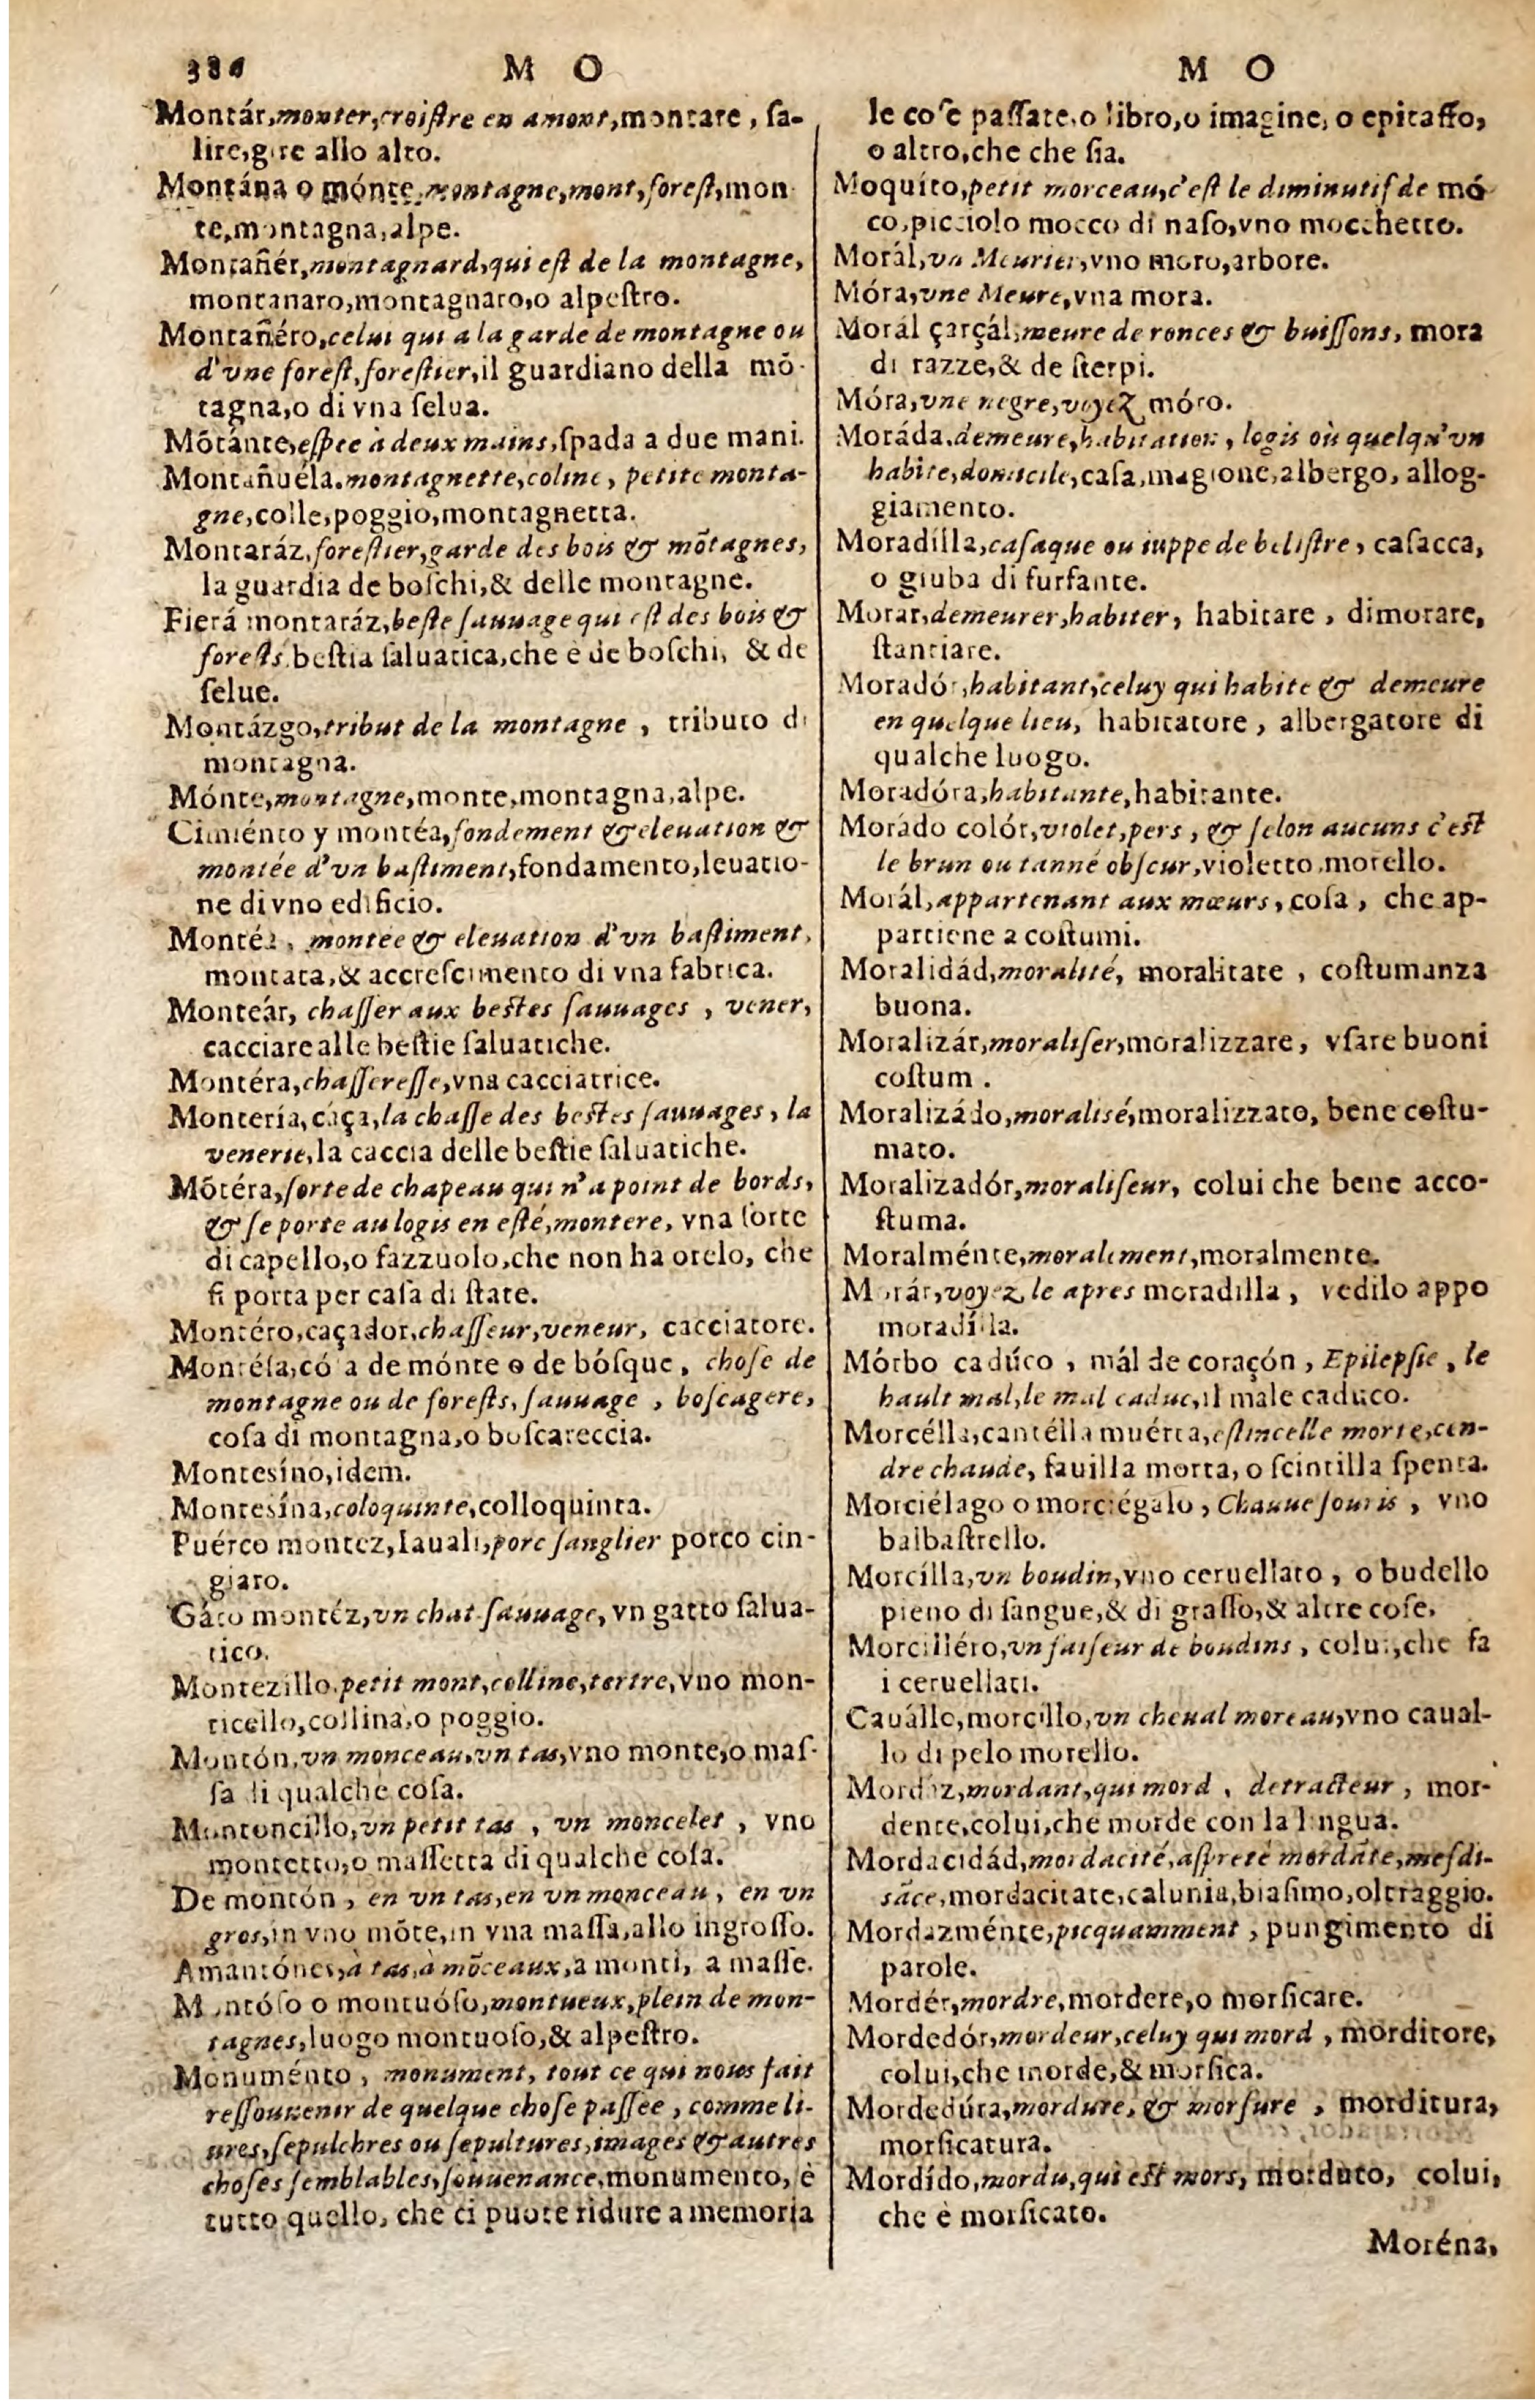 386
M O
Montár, monter, croiſtre en amont, montare, ſa-
lire, gire allo alto.
Montána o mónte, montagne, mont, foreſt, mon
te, montagna, alpe.
Montañér, montagnard, qui eſt de la montagne,
montanaro, montagnaro, o alpeſtro.
Montañéro, celui qui a la garde de montagne ou
d'vne foreſt, foreſtier, il guardiano della mō-
tagna, o di vna ſelua.
Mōtánte, eſpee à deux mains, ſpada a due mani.
Montañuéla. montagnette, coline, petite monta-
gne, colle, poggio, montagnetta.
Montaráz, foreſtier, garde des bois & mōtagnes,
la guardia de boſchi, & delle montagne.
Fierá montaráz, beſte ſauuage qui eſt des bois &
foreſts. beſtia ſaluatica, che è de boſchi, & de
ſelue.
Montázgo, tribut de la montagne, tributo di
montagna.
Mónte, montagne, monte, montagna, alpe.
Cimiénto y montéa, fondement & eleuation &
montée d'vn baſtiment, fondamento, leuatio-
ne di vno edificio.
Montéa, montee & eleuation d'vn baſtiment,
montata, & accreſcimento di vna fabrica.
Monteár, chaſſer aux beſtes ſauuages, vener,
cacciare alle beſtie ſaluatiche.
Montéra, chaſſereſſe, vna cacciatrice.
Montería, cáça, la chaſſe des beſtes ſauuages, la
venerie, la caccia delle beſtie ſaluatiche.
Mōtéra, ſorte de chapeau qui n'a point de bords,
& ſe porte au logis en eſté, montere, vna ſorte
di capello, o fazzuolo, che non ha orelo, che
ſi porta per caſa di ſtate.
Montéro, caçador, chaſſeur, veneur, cacciatore.
Montéſa, có a de mónte o de bóſque, choſe de
montagne ou de foreſts, ſauuage, boſcagere,
coſa di montagna, o boſcareccia.
Montesíno, idem.
Montesína, coloquinte, colloquinta.
Puérco montez, Iauali, porc ſanglier porco cin-
giaro.
Gáto montéz, vn chat ſauuage, vn gatto ſalua-
tico.
Montezillo. petit mont, colline, tertre, vno mon-
ticello, collina, o poggio.
Montón, vn monceau, vn tas, vno monte, o maſ-
ſa di qualche coſa.
Montoncillo, vn petit tas, vn moncelet, vno
montetto, o maſſetta di qualche coſa.
De montón, en vn tas, en vn monceau, en vn
gros, in vno mōte, in vna maſſa, allo ingroſſo.
Amantónes, à tas, à mōceaux, a monti, a maſſe.
Montóſo o montuóſo, montueux, plein de mon-
tagnes, luogo montuoſo, & alpeſtro.
Monuménto, monument, tout ce qui nous fait
reſſouuenir de quelque choſe paſſée, comme li-
ures, ſepulchres ou ſepultures, images & autres
choſes ſemblables, ſouuenance, monumento, è
tutto quello, che ci puote ridure a memoria
M O
le coſe paſſate, o libro, o imagine, o epitaffo,
o altro, che che ſia.
Moquíto, petit morceau, c'eſt le diminutif de mó
co, picciolo mocco di naſo, vno mocchetto.
Morál, vn Meurier, vno moro, arbore.
Móra, vne Meure, vna mora.
Morál çarçál, meure de ronces & buiſſons, mora
di razze, & de ſterpi.
Móra, vne negre, voyez móro.
Moráda. demeure, habitation, logis où quelqu'vn
habite, domicile, caſa, magione, albergo, allog-
giamento.
Moradílla, caſaque ou iuppe de beliſtre, caſacca,
o giuba di furfante.
Morar, demeurer, habiter, habitare, dimorare,
ſtantiare.
Moradór, habitant, celuy qui habite & demeure
en quelque lieu, habitatore, albergatore di
qualche luogo.
Moradóra, habitante, habitante.
Morádo colór, violet, pers, & ſelon aucuns c'eſt
le brun ou tanné obſcur, violetto, morello.
Morál, appartenant aux mœurs, coſa, che ap-
partiene a coſtumi.
Moralidád, moralité, moralitate, coſtumanza
buona.
Moralizár, moraliſer, moralizzare, vſare buoni
coſtum .
Moralizádo, moralisé, moralizzato, bene coſtu-
mato.
Moralizadór, moraliſeur, colui che bene acco-
ſtuma.
Moralménte, moralement, moralmente.
Morár, voyez le apres moradilla, vedilo appo
moradilla.
Mórbo cadúco, mál de coraçón, Epilepſie, le
hault mal, le mal caduc, il male caduco.
Morcélla, cantélla muérta, eſtincelle morte, cen-
dre chaude, fauilla morta, o ſcintilla ſpenta.
Morciélago o morciégalo, Chauueſouris, vno
balbaſtrello.
Morcílla, vn boudin, vno ceruellato, o budello
pieno di ſangue, & di graſſo, & altre coſe.
Morcilléro, vn faiſeur de boudins, colui, che fa
i ceruellati.
Cauállo, morcillo, vn cheual moreau, vno caual-
lo di pelo morello.
Mordáz, mordant, qui mord, detracteur, mor-
dente, colui, che morde con la lingua.
Mordacidád, mordacité, aſpreté mordāte, meſdi-
sāce, mordacitate, calunia, biaſimo, oltraggio.
Mordazménte, picquamment, pungimento di
parole.
Mordér, mordre, mordere, o morſicare.
Mordedór, mordeur, celuy qui mord, morditore,
colui, che morde, & morſica.
Mordedúra, mordure, & morſure, morditura,
morſicatura.
Mordído, mordu, qui eſt mors, morduto, colui,
che è morſicato.
Moréna,